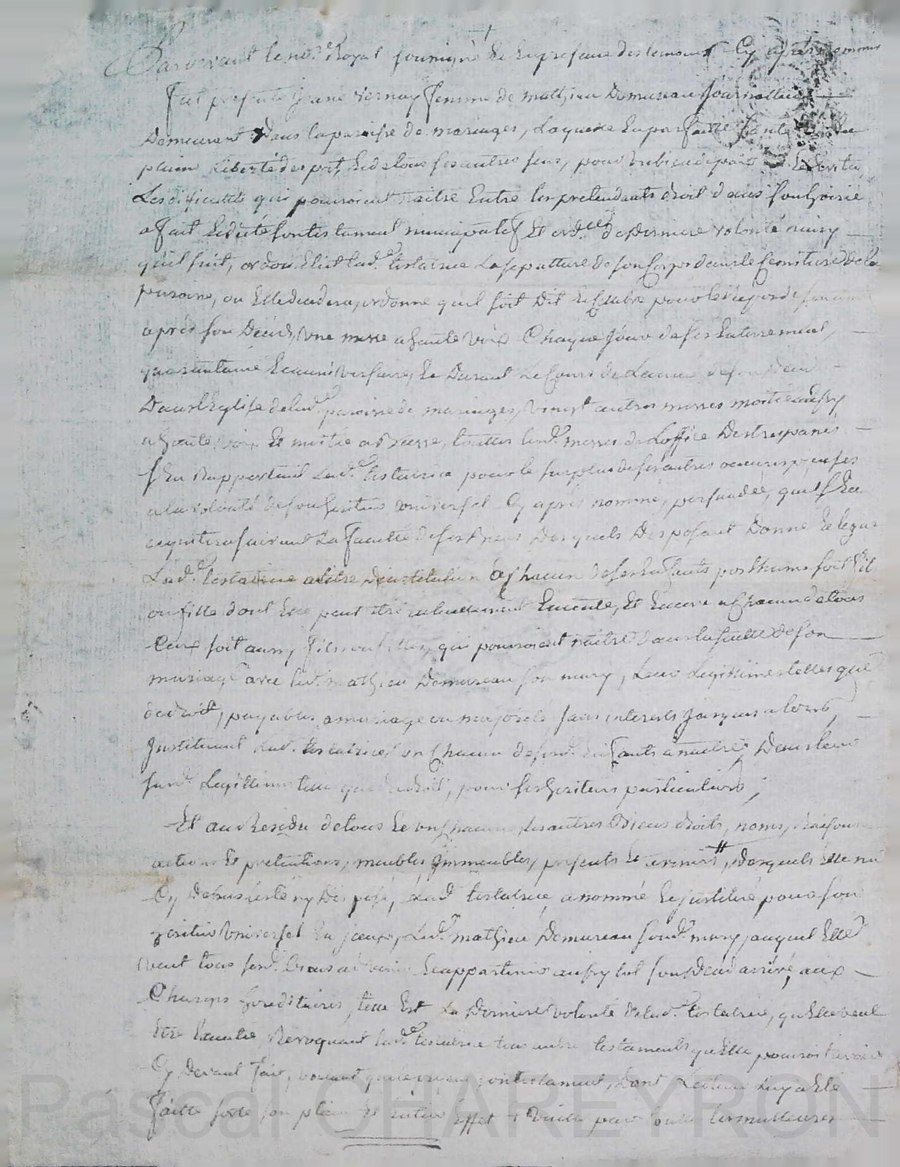 Pardevant le no.re Royal soussigné Et En presence des temoins Cy apres nommés
fut presente Jeanne Vernay femme de mathieu Demureau Journallier
Demeurant Dans la paroisse de mariages, Laquelle En parfaitte santé
plaine Liberté desprit, Et de tous ses autres sens, pour
Les dificultés qui pouroient naitre Entre les pretendants droit dans son hoirie
a fait Et dicté son testament nuncupatif Et ord.ce de derniere volonté ainsy
qu'il suit, Elit lad.e testatrice La sepulture de son Corps dans le Cimetiere de la
paroisse, ou Elle decedera, ordonne qu'il soit Dit Et Celebré pour le repos de son ame
apres son Décés, Une messe a haute voix Chaque Jour de ses Enterrement,
quarantaine Et anniversaire, Et Durant Le Cours de L'année de son deces
Dans L'Eglise de lad.e paroisse de mariages, vingt autres messes moitié aussy
a haute voix Et moitié a basse, touttes lesd. messes de L'office Des trepassés
S'En Rapportant Lad.e testatrice pour le surplus de ses autres oeuvres pieuses
a la volonté de son heritier universel Cy apres nommé, persuadée, quil s'En
acquittera suivant La faculté de ses biens, Desquels Disposant Donne Et legue
Lad.e testatrice a titre D'institution a Chacun de ses Enfants posthumes soit fils
ou fille dont Elle peut etre actuellement Enceinte, Et Encore a Chacun de tous
Ceux soit aussy fils ou filles, qui pouroient naitre Dans la suitte de son
mariage avec led. mathieu Demureau son mary, Leur Legitime telle que
de droit, payable, a mariage ou majorité sans interets Jusques alors,
Instituant Lad. testatrice un Chacun de sesd. Enfants a naitre, Dans leur
susd. Legitime telle que de droit, pour ses heritiers particuliers,
Et au Residu de tous Et un Chacuns ses autres Biens droits, noms, raisons
actions Et pretentions, meubles, Immeubles, presents Et avenirs, desquels Elle na
Cy Dessus testé ny Disposé, Lad. testatrice a nommé Et institué pour son
heritier Universel Led. mathieu Demureau sond. mary, auquel Elle
veut tous sesd. biens advenir Et appartenir aussytot son Deces arrivé, aux
Charges hereditaires, telle Est La Derniere volonté de lad.e testatrice, qu'Elle veut
Etre Executée Revoquant lad.e testatrice tous autres testaments qu'Elle pouroit avoir
Cy Devant fait, voulant que le present testament, Dont Lecture Luy a Eté
faitte sorte son plain Et Entier effet Et vaille par touttes les meilleures
Pascal CHAREYRON